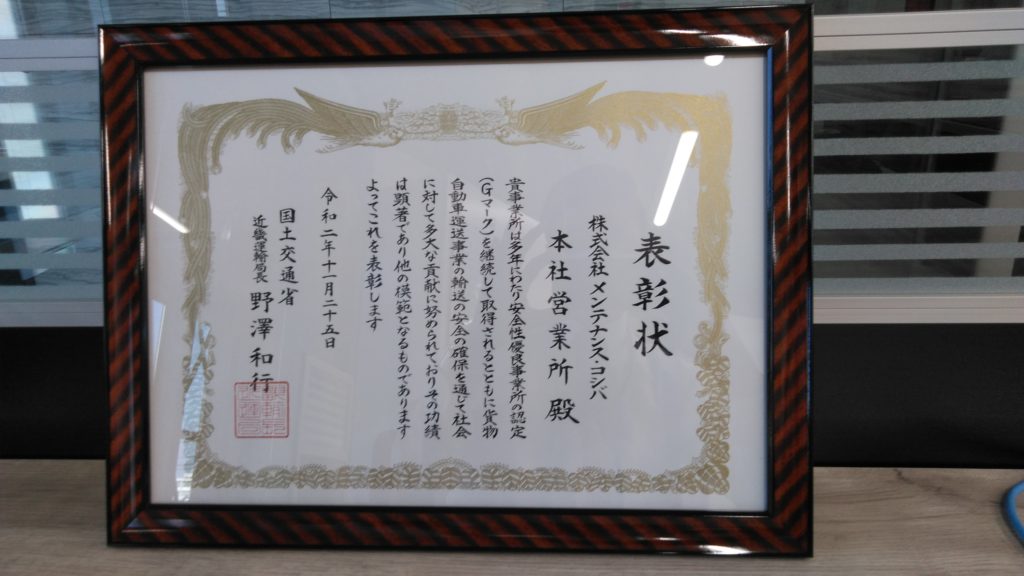 表彰状
株式会社メンテナンス・コシバ
本社営業所 殿
貴事業所は多年にわたり安全性優良事業所の認定
(Gマーク)を継続して取得されるとともに貨物
自動車運送事業の輸送の安全の確保を通じて社会
に対して多大な貢献に努められておりその功績
は顕著であり他の模範となるものであります
よってこれを表彰します
令和二年十一月二十五日
国土交通省
近畿運輸局長 野澤和行